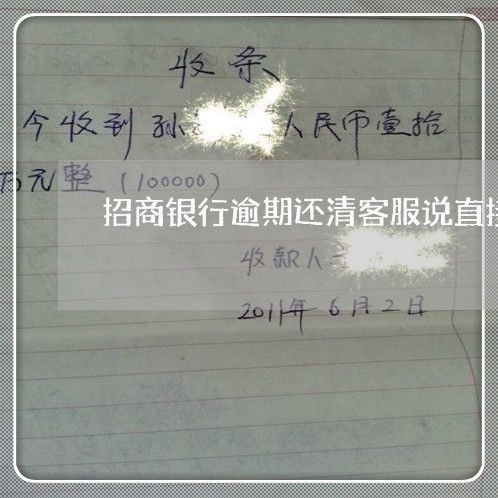 收条
今收到孙 人民币壹拾
万元整(100000)
招商银行逾期还清客服说直接
收款人
2011年6月2日